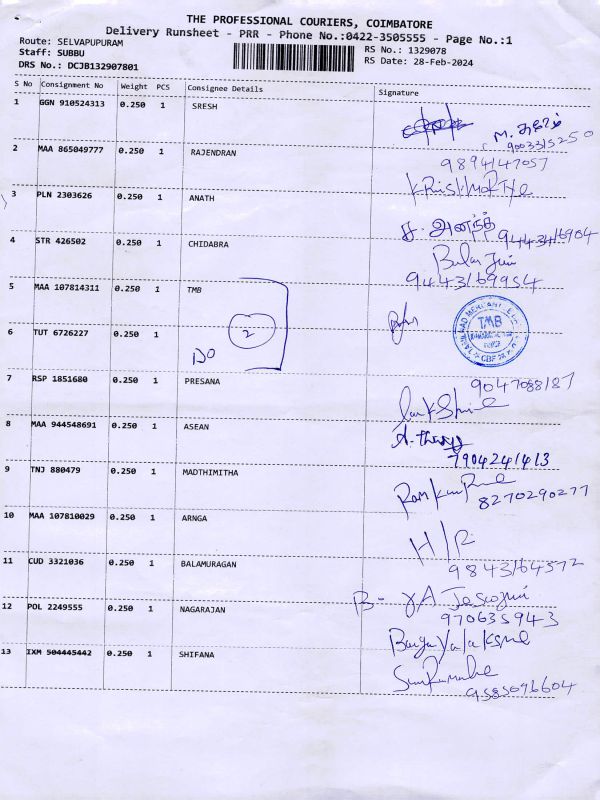 THE PROFESSIONAL COURIERS, COIMBATORE
Delivery Runsheet - PRR - Phone No.:0422-3505555 - Page No.:1
Route: SELVAPUPURAM
Staff: SUBBU
DRS No.: DCJB132907801
RS No.: 1329078
RS Date: 28-Feb-2024
S No Consignment No Weight PCS Consignee Details Signature
1 GGN 910524313 0.250 1 SRESH
2 MAA 865049777 0.250 1 RAJENDRAN
9894147057
3 PLN 2303626 0.250 1 ANATH
ச. அனந்த்
4 STR 426502 0.250 1 CHIDABRA
9443169954
5 MAA 107814311 0.250 1 TMB
2
TMB
6 TUT 6726227 0.250 1
DO
7 RSP 1851680 0.250 1 PRESANA
9047088187
8 MAA 944548691 0.250 1 ASEAN
7904241413
9 TNJ 880479 0.250 1 MADTHIMITHA
8270290277
10 MAA 107810029 0.250 1 ARNGA
H/R
9843164572
11 CUD 3321036 0.250 1 BALAMURAGAN
12 POL 2249555 0.250 1 NAGARAJAN
970635943
13 IXM 504445442 0.250 1 SHIFANA
9585096604